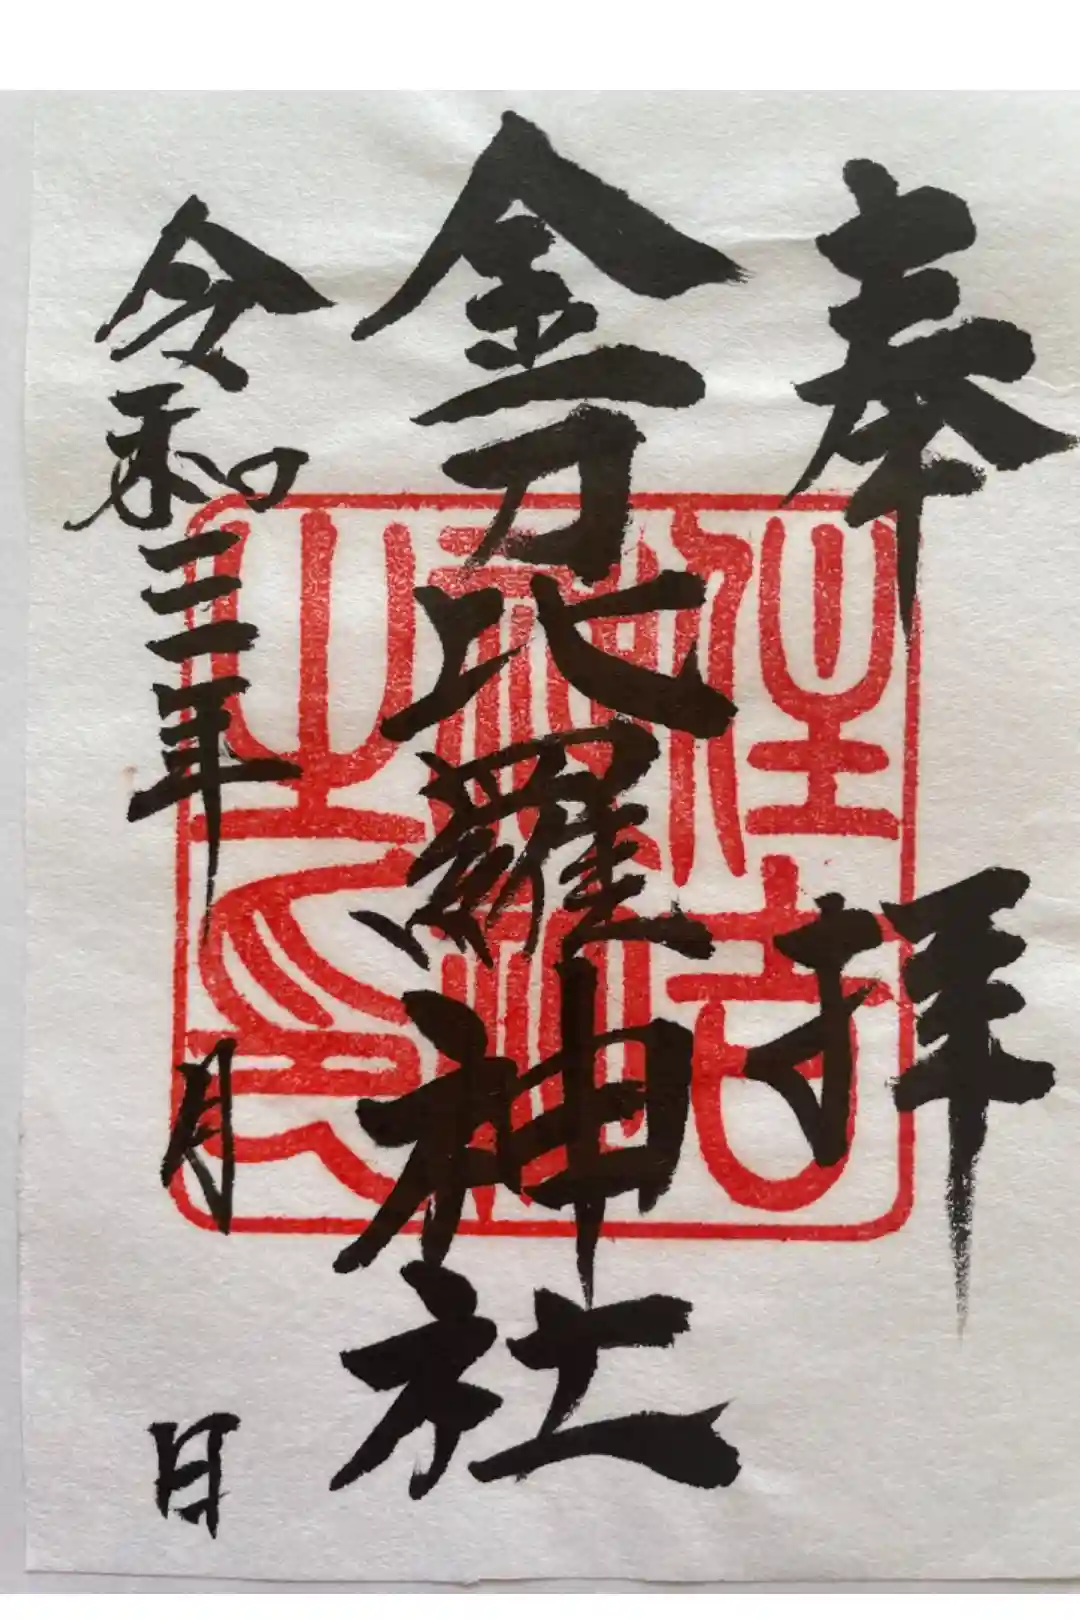 奉拝
金刀比羅神社
令和三年 月 日
住吉
神社
之印